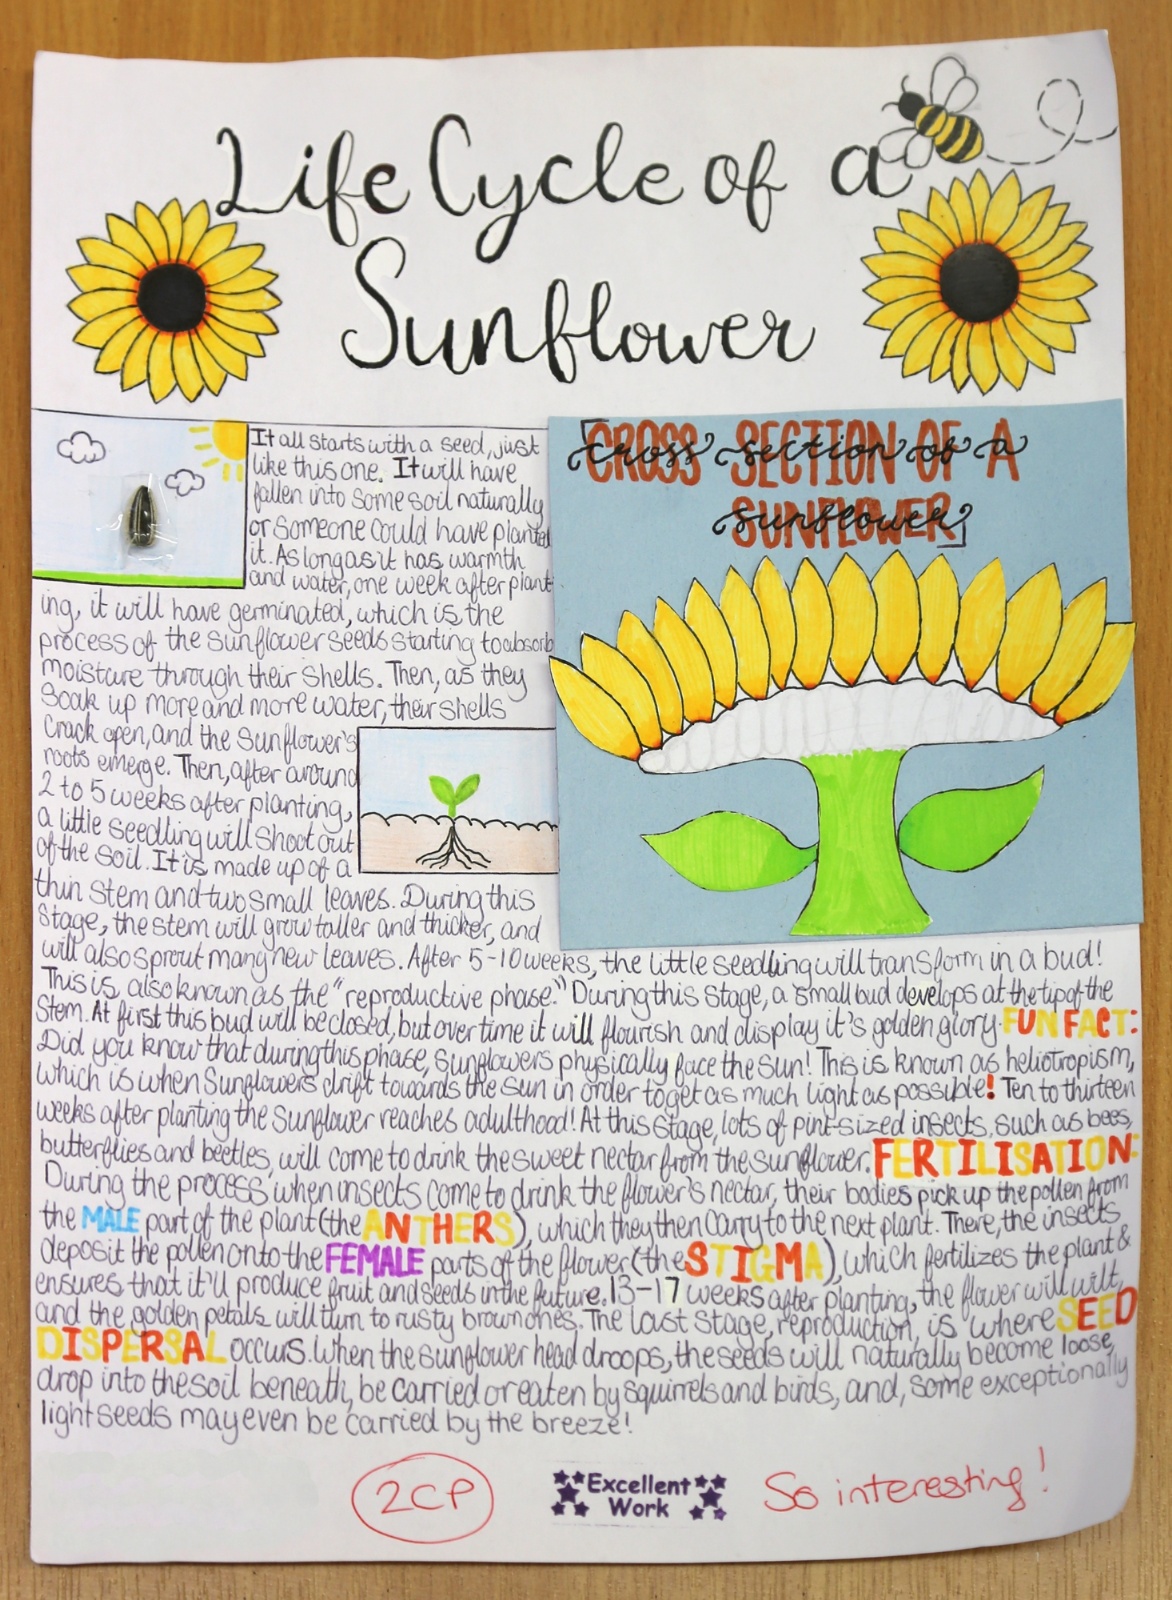 Life Cycle of a
Sunflower
CROSS SECTION OF A
cross section of a
SUNFLOWER
sunflower
It all starts with a seed, just
like this one. It will have
fallen into some soil naturally
or someone could have planted
it. As long as it has warmth
and water, one week after plant-
ing, it will have germinated, which is the
process of the sunflower seeds starting to absorb
moisture through their shells. Then, as they
soak up more and more water, their shells
crack open, and the sunflower's
roots emerge. Then, after around
2 to 5 weeks after planting,
a little seedling will shoot out
of the soil. It is made up of a
thin stem and two small leaves. During this
stage, the stem will grow taller and thicker, and
will also sprout many new leaves. After 5-10 weeks, the little seedling will transform in a bud!
This is also known as the "reproductive phase." During this stage, a small bud develops at the tip of the
stem. At first this bud will be closed, but over time it will flourish and display it's golden glory. FUN FACT:
Did you know that during this phase, sunflowers physically face the sun! This is known as heliotropism,
which is when sunflowers drift towards the sun in order to get as much light as possible! Ten to thirteen
weeks after planting the sunflower reaches adulthood! At this stage, lots of pint-sized insects, such as bees,
butterflies and beetles, will come to drink the sweet nectar from the sunflower. FERTILISATION:
During the process when insects come to drink the flower's nectar, their bodies pick up the pollen from
the MALE part of the plant (the ANTHERS), which they then carry to the next plant. There, the insects
deposit the pollen onto the FEMALE parts of the flower (the STIGMA), which fertilizes the plant &
ensures that it'll produce fruit and seeds in the future. 13-17 weeks after planting, the flower will wilt,
and the golden petals will turn to rusty brown ones. The last stage, reproduction, is where SEED
DISPERSAL occurs. When the sunflower head droops, the seeds will naturally become loose,
drop into the soil beneath, be carried or eaten by squirrels and birds, and, some exceptionally
light seeds may even be carried by the breeze!
2CP
Excellent
Work
So interesting!